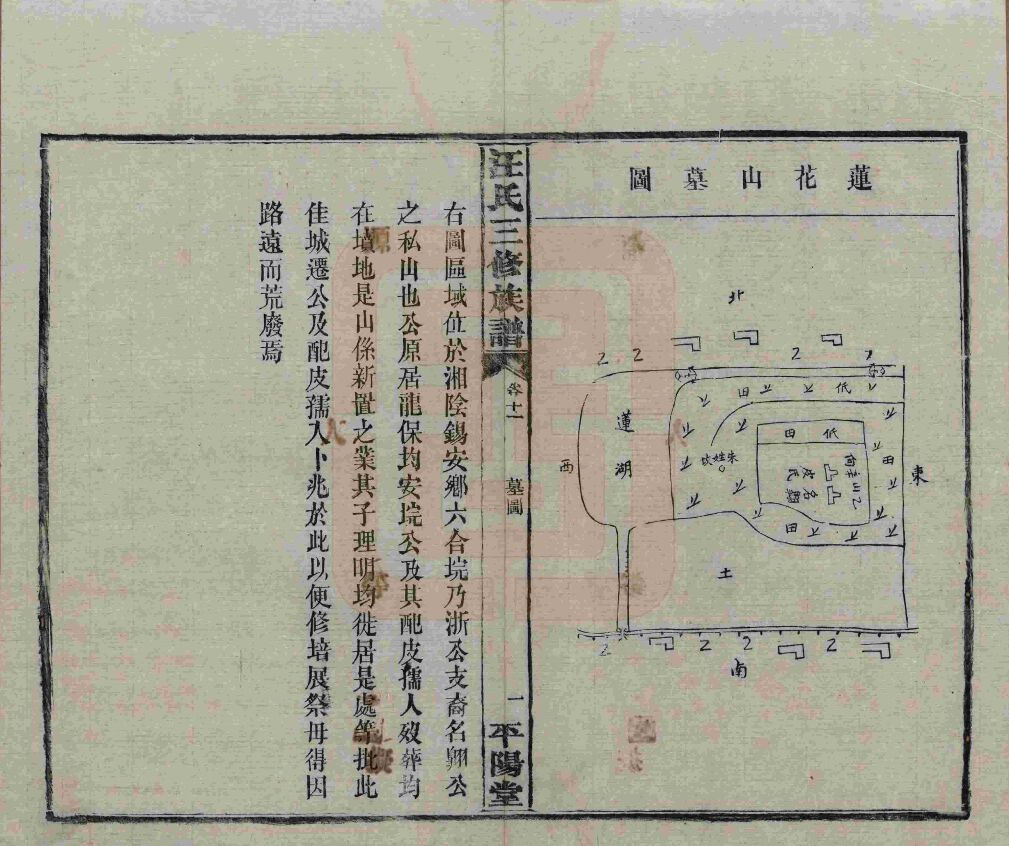 蓮花山墓圖
北
低
田
低田
蓮湖
朱姓坟
名翺
皮氏
田
東
西
田
土
南
汪氏三修族譜
卷十一
墓圖
一
平陽堂
右圖區域位於湘陰錫安鄉六合垸乃浙公支裔名翺公
之私山也公原居龍保均安垸公及其配皮孺人歿葬均
在墳地是山係新置之業其子理明均徙居是處等批此
佳城遷公及配皮孺人卜兆於此以便修培展祭毋得因
路遠而荒廢焉